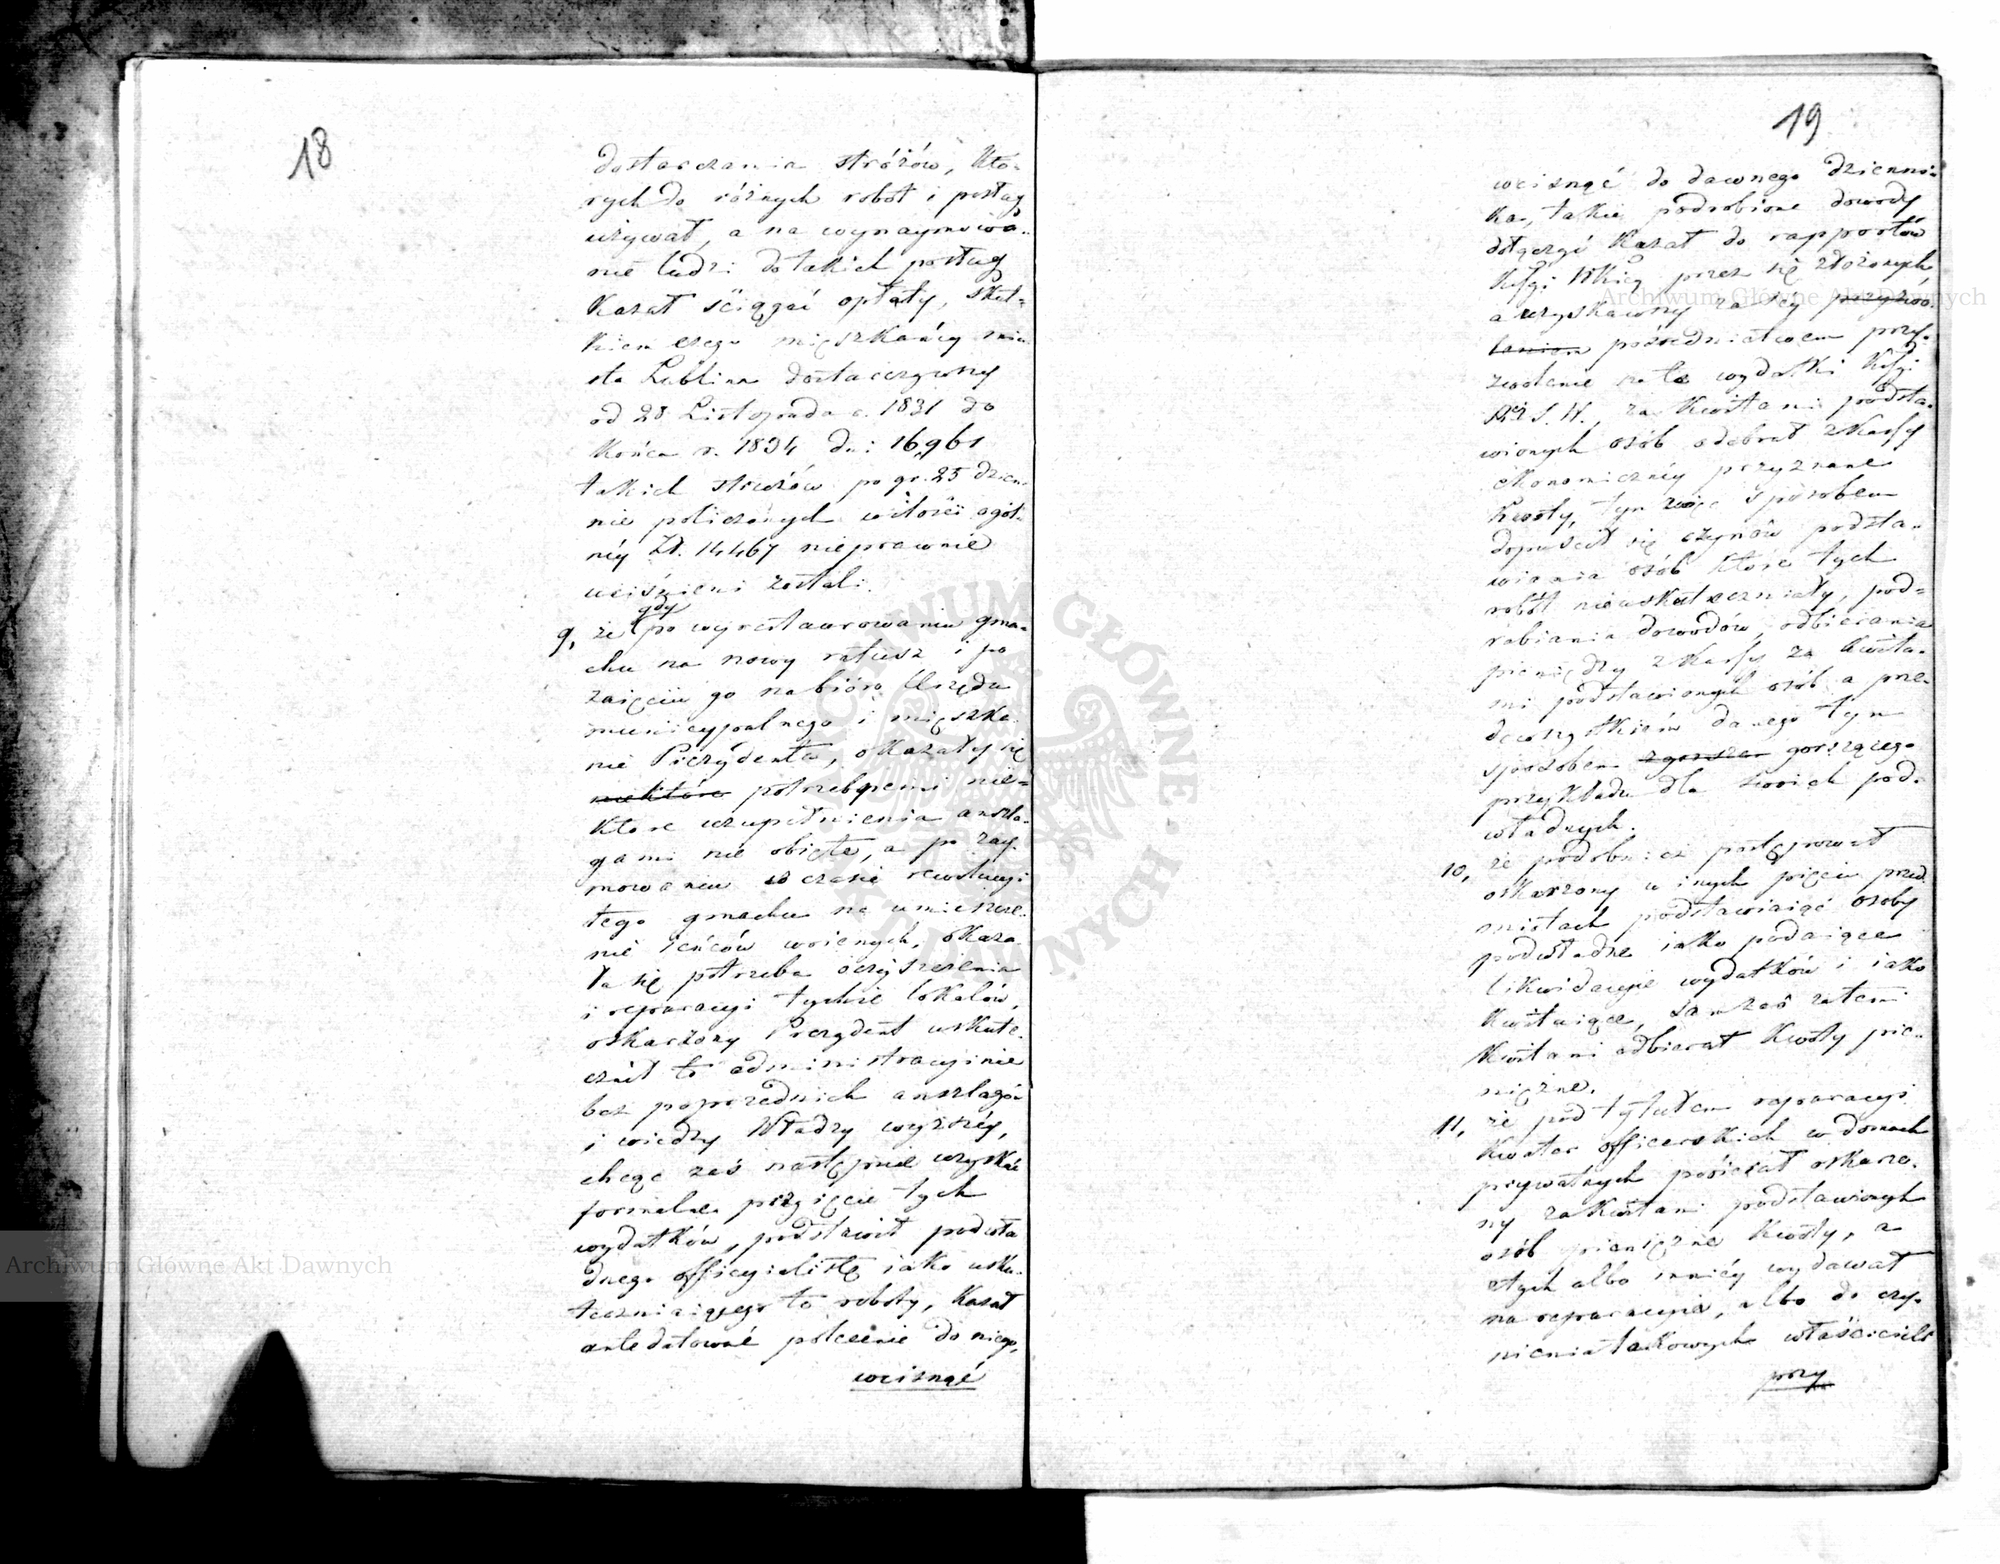 18
dostarczania stróżów, któ-
rych do różnych robót i posług
używał, a na wynaymowa-
nie ludzi do takich posług
kazał ściągać opłaty, skut-
kiem czego mięszkańcy mia-
sta Lublina dostarczywszy
od 28 Listopada r. 1831 do
końca r. 1834 dni 16,961
takich stróżów po gr. 25 dzien-
nie policzonych w ilości ogól-
néy Zł. 14467 nieprawnie
uciśnieni zostali.
9, że gdy po wyrestaurowaniu gma-
chu na nowy ratusz i po
zaięciu go na bióro Urzędu
municypalnego i mięszka-
nie Prezydenta, okazały się
niektóre potrzebnemi nie-
które uzupełnienia anszla-
gami nie obięte, a po zay-
mowaniu w czasie rewolucyi
tego gmachu na umieszcze-
nie ieńców woiennych, okaza-
ła się potrzeba oczyszczenia
i reparacyi tychże lokalów,
oskarżony Prezydent uskute-
cznił to administracyinie
bez poprzednich anszlagów
i wiedzy Władzy wyższéy,
chcąc zaś następnie uzyskać
formalne przyięcie tych
wydatków, podstawił podwła-
dnego officyalistę iako usku-
teczniaiącego te roboty, kazał
antedatować polecenie do niego,
wcisnąć
19
wcisnąć do dawnego dzienni-
ka, takie podrobione dowody
dołączyć kazał do rapportów
Kssyi Wkiey przez się złożonych,
a uzyskawszy za iey
pośrednictwem przy-
zwolenie na te wydatki Kssyi
Rz. S. W., za kwitami podsta-
wionych osób odebrał z kassy
ekonomicznéy przyznane
kwoty, tym więc sposobem
dopuścił się czynów podsta-
wiania osób które tych
robót nieuskuteczniały, pod-
rabiania dowodów, odbierania
pieniędzy z kassy za kwita-
mi podstawionych osób a prze-
dewszystkiem danego tym
sposobem gorszącego
przykładu dla swoich pod-
władnych.
10, że podobnież postępował
oskarżony w innych pięciu przed-
miotach podstawiaiąc osoby
podwładne iako podaiące
likwidacyie wydatków i iako
kwituiące, sam zaś za temi
kwitami odbierał kwoty pie-
niężne.
11, że pod tytułem reparacyi
kwater officerskich w domach
prywatnych pobierał oskarżo-
ny za kwitami podstawionych
osób pieniężne kwoty, a
z tych albo mniéy wydawał
na reparacyie, albo do czy-
nienia takowych właścicieli
przy